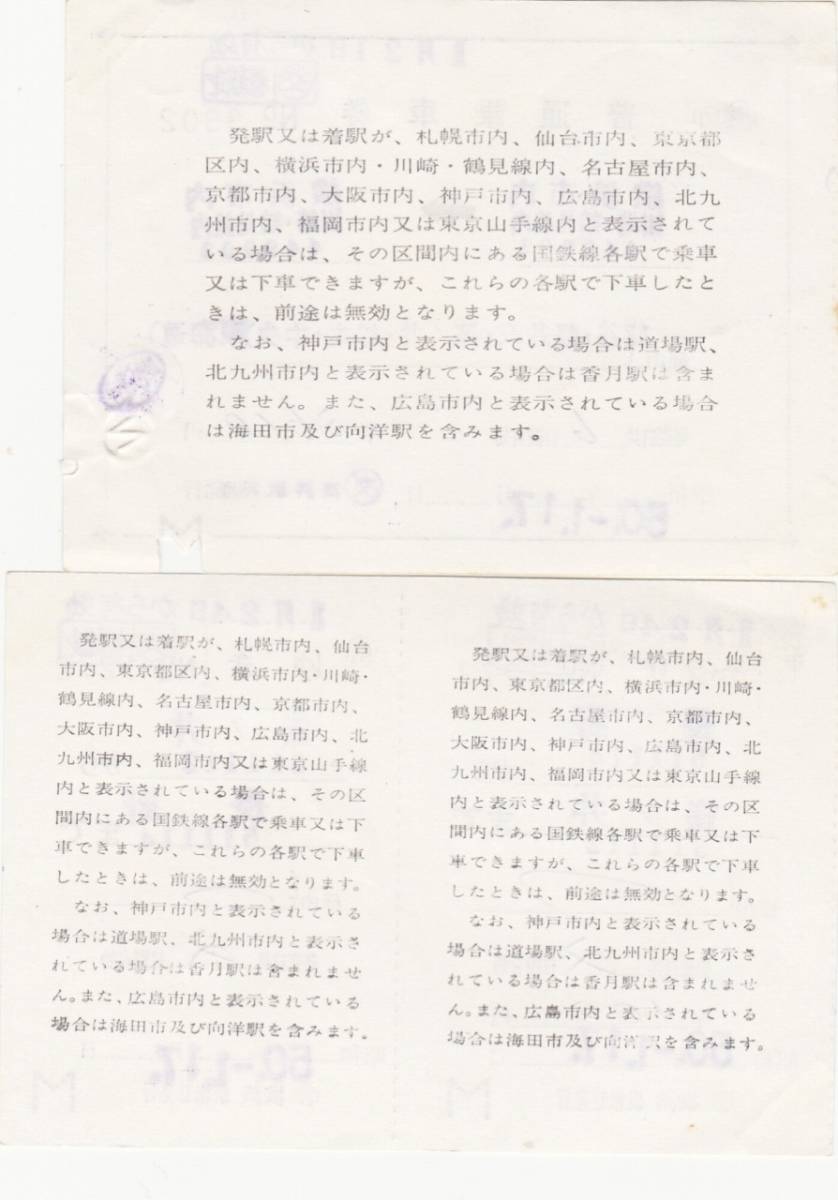 発駅又は着駅が、札幌市内、仙台市内、東京都
区内、横浜市内・川崎・鶴見線内、名古屋市内、
京都市内、大阪市内、神戸市内、広島市内、北九
州市内、福岡市内又は東京山手線内と表示されて
いる場合は、その区間内にある国鉄線各駅で乗車
又は下車できますが、これらの各駅で下車したと
きは、前途は無効となります。
なお、神戸市内と表示されている場合は道場駅、
北九州市内と表示されている場合は香月駅は含ま
れません。また、広島市内と表示されている場合
は海田市及び向洋駅を含みます。
50.-1.17
発駅又は着駅が、札幌市内、仙台
市内、東京都区内、横浜市内・川崎・
鶴見線内、名古屋市内、京都市内、
大阪市内、神戸市内、広島市内、北
九州市内、福岡市内又は東京山手線
内と表示されている場合は、その区
間内にある国鉄線各駅で乗車又は下
車できますが、これらの各駅で下車
したときは、前途は無効となります。
なお、神戸市内と表示されている
場合は道場駅、北九州市内と表示さ
れている場合は香月駅は含まれませ
ん。また、広島市内と表示されている
場合は海田市及び向洋駅を含みます。
50.-1.17
発駅又は着駅が、札幌市内、仙台
市内、東京都区内、横浜市内・川崎・
鶴見線内、名古屋市内、京都市内、
大阪市内、神戸市内、広島市内、北
九州市内、福岡市内又は東京山手線
内と表示されている場合は、その区
間内にある国鉄線各駅で乗車又は下
車できますが、これらの各駅で下車
したときは、前途は無効となります。
なお、神戸市内と表示されている
場合は道場駅、北九州市内と表示さ
れている場合は香月駅は含まれませ
ん。また、広島市内と表示されている
場合は海田市及び向洋駅を含みます。